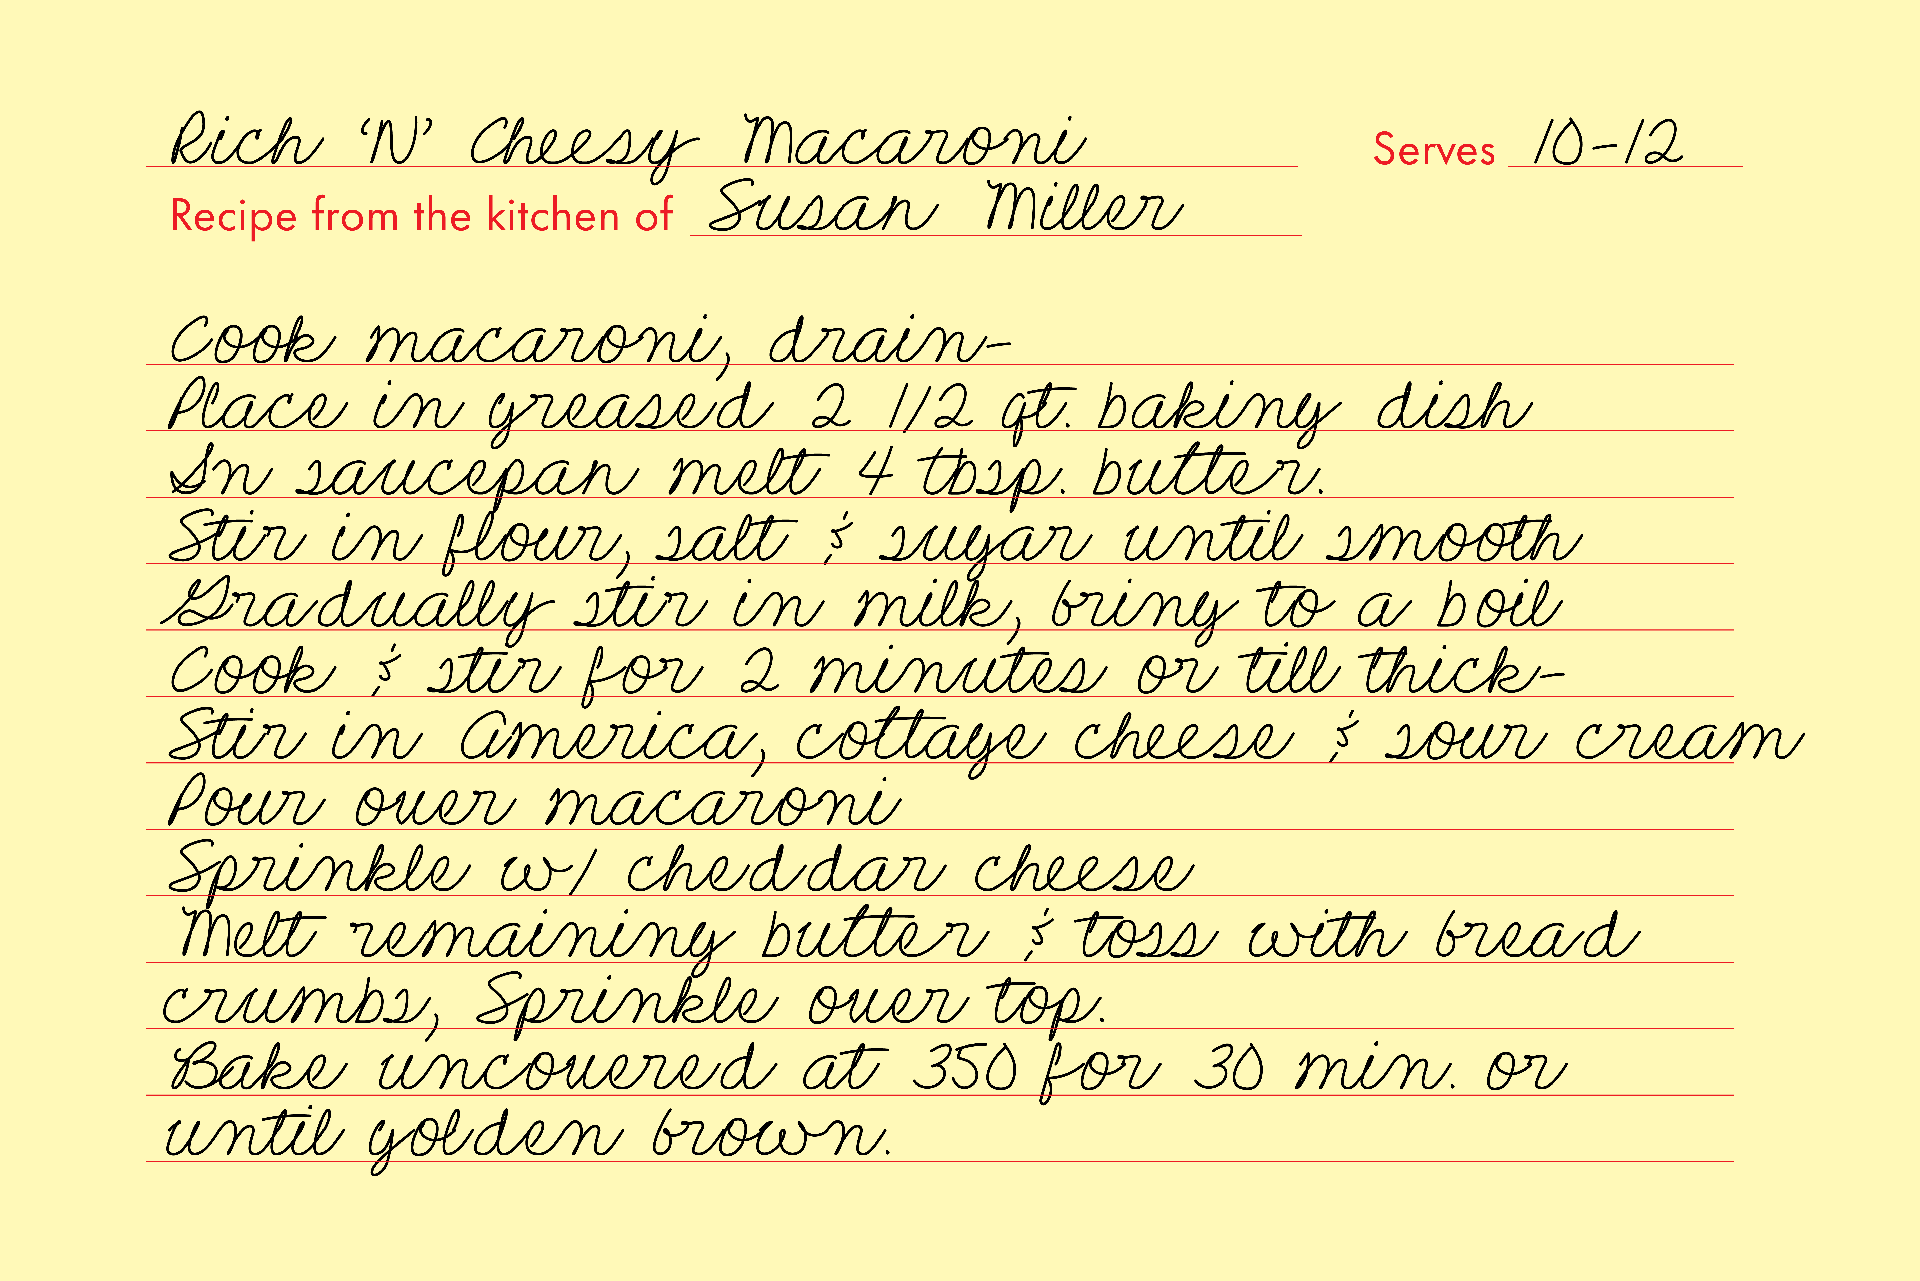 Rich ‘N’ Cheesy Macaroni Serves 10-12
Recipe from the kitchen of Susan Miller
Cook macaroni, drain-
Place in greased 2 1/2 qt. baking dish
In saucepan melt 4 tbsp. butter.
Stir in flour, salt & sugar until smooth
Gradually stir in milk, bring to a boil
Cook & stir for 2 minutes or till thick-
Stir in America, cottage cheese & sour cream
Pour over macaroni
Sprinkle w/ cheddar cheese
Melt remaining butter & toss with bread
crumbs, Sprinkle over top.
Bake uncovered at 350 for 30 min. or
until golden brown.